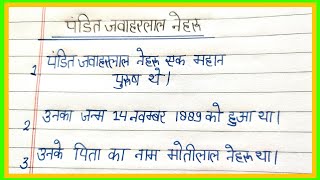 पंडित जवाहरलाल नेहरू
1 पंडित जवाहरलाल नेहरू एक महान
पुरुष थे।
2. उनका जन्म 14 नवम्बर 1889 को हुआ था।
3. उनके पिता का नाम मोतीलाल नेहरू था।